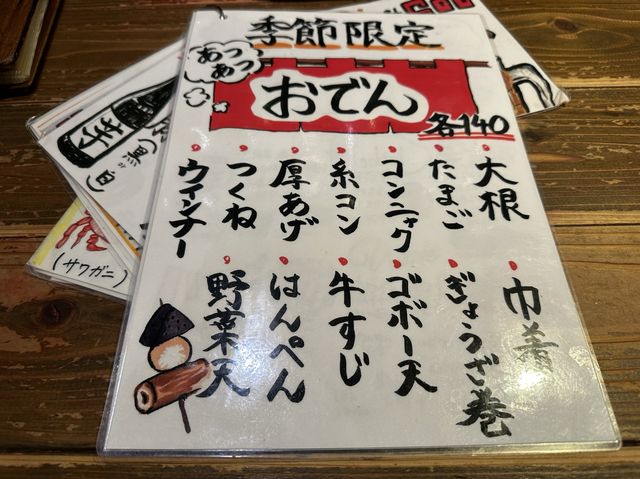 季節限定
あつあつ
おでん
各140
大根
たまご
コンニャク
糸コン
厚あげ
つくね
ウィンナー
巾着
ぎょうざ巻
ゴボー天
牛すじ
はんぺん
野菜天
(黒 白)
(サワガニ)